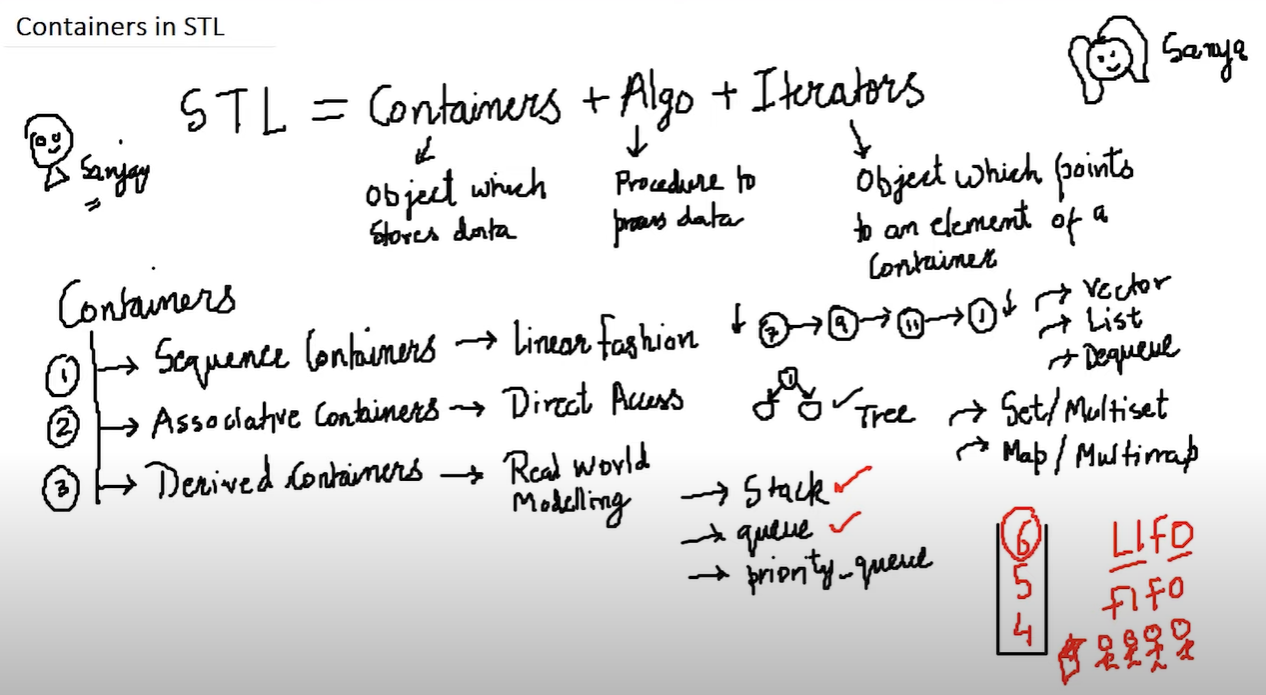 Containers in STL
Sanya
STL = Containers + Algo + Iterators
Sanjay
Object which
stores data
Procedure to
data
Object which points
to an element of a
Container
Containers
1 Sequence Containers → Linear fashion
7 → 9 → 11 → 1
→ Vector
→ List
→ Dequeue
2 Associative Containers → Direct Access
1
Tree
→ Set/Multiset
→ Map/Multimap
3 → Derived Containers → Real World
Modelling
→ Stack
→ queue
→ priority_queue
6
5
4
LIFO
FIFO